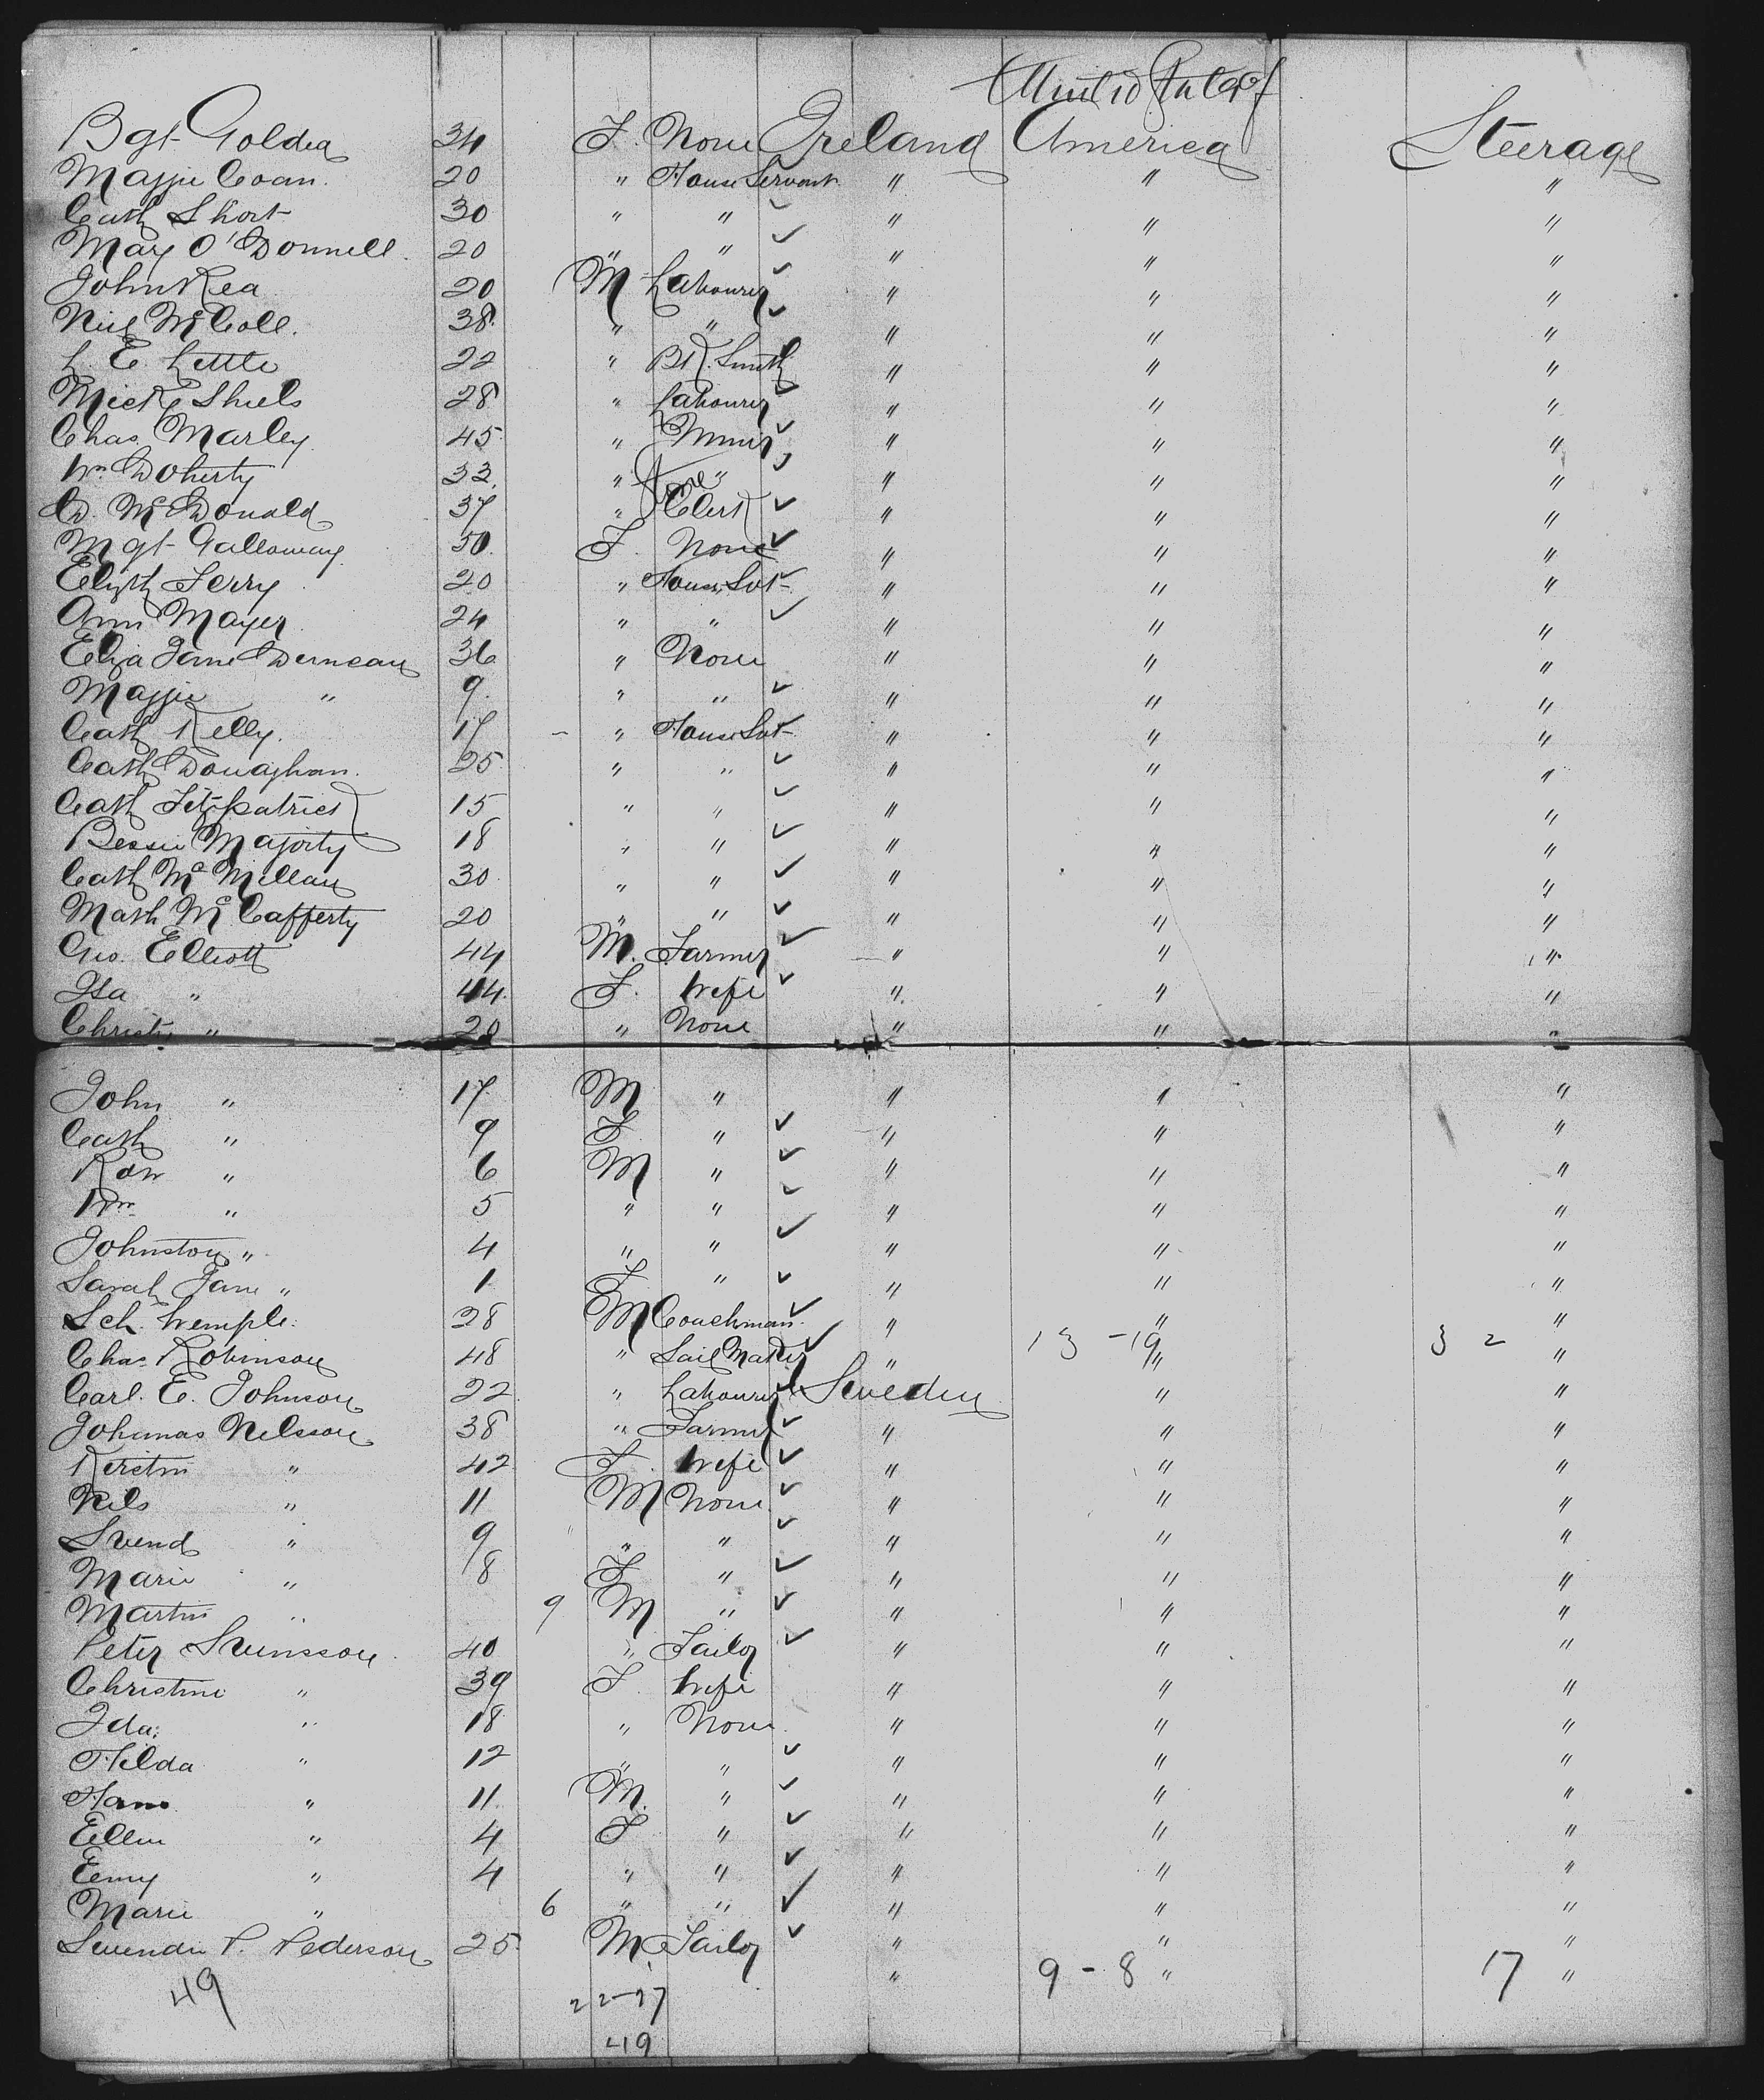 United States of
Bgt Golden 34 F. None Ireland America Steerage
Maggie Coan. 20 " House Servant " " "
Cath Short 30 " " " " "
Mary O'Donnell. 20 " " " " "
John Rea 20 M Labourer " " "
Neil McColl. 38 " " " " "
L. E. Little 22 " Bk. Smith " " "
Mick Shiels 28 " Labourer " " "
Chas. Marley 45 " Miner " " "
Wm Doherty 33. " " " " "
D. McDonald 37 " Clerk " " "
Mgt Galloway 50. F. None " " "
Elizth Ferry 20 " House Svt " " "
Ann Mayer 24 " " " " "
Eliza Jane Duncan 36 " None " " "
Maggie " 9. " " " " "
Cath Kelly. 17 " House Svt " " "
Cath Donaghan. 25 " " " " "
Cath Fitzpatrick 15 " " " " "
Bessie 18 " " " " "
Cath McMillan 30 " " " " "
McCafferty 20 " " " " "
Geo. Elliott 44 M. Farmer " " "
Isa " 44. F. Wife " " "
Christ. " 20 " None " " "
John " 17 M " " " "
Cath " 9 F " " " "
Robt " 6 M " " " "
Wm " 5 " " " " "
Johnston " 4 " " " " "
Sarah Jane " 1 F " " " "
Wemple. 28 M Coachman. " " "
Chas Robinson 48 " Sail Maker " 13 - 19 " 32 "
Carl. E. Johnson 22 " Labourer Sweden " "
Johannas Nelsson 38 " Farmer " " "
Kerstin " 42 F. Wife " " "
Nils " 11 M None. " " "
Svend " 9 " " " " "
Marie " 8 F " " " "
Martin " 9 M " " " "
Peter Svensson. 40 " Tailor " " "
Christine " 39 F. Wife " " "
Ida. " 18 " None. " " "
Hilda " 12 " " " " "
Hans " 11. M. " " " "
Ellen " 4 F " " " "
Emmy " 4 " " " " "
Marie " 6 " " " " "
P. Pederson 25 M. Tailor " " "
" 9 - 8 " 17 "
49 22-27
49